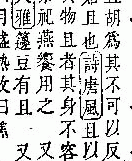 胡爲其不可以反
且也詩唐風且以
物且者其身不容
祀燕饗用之　又
雅籩豆有且　又